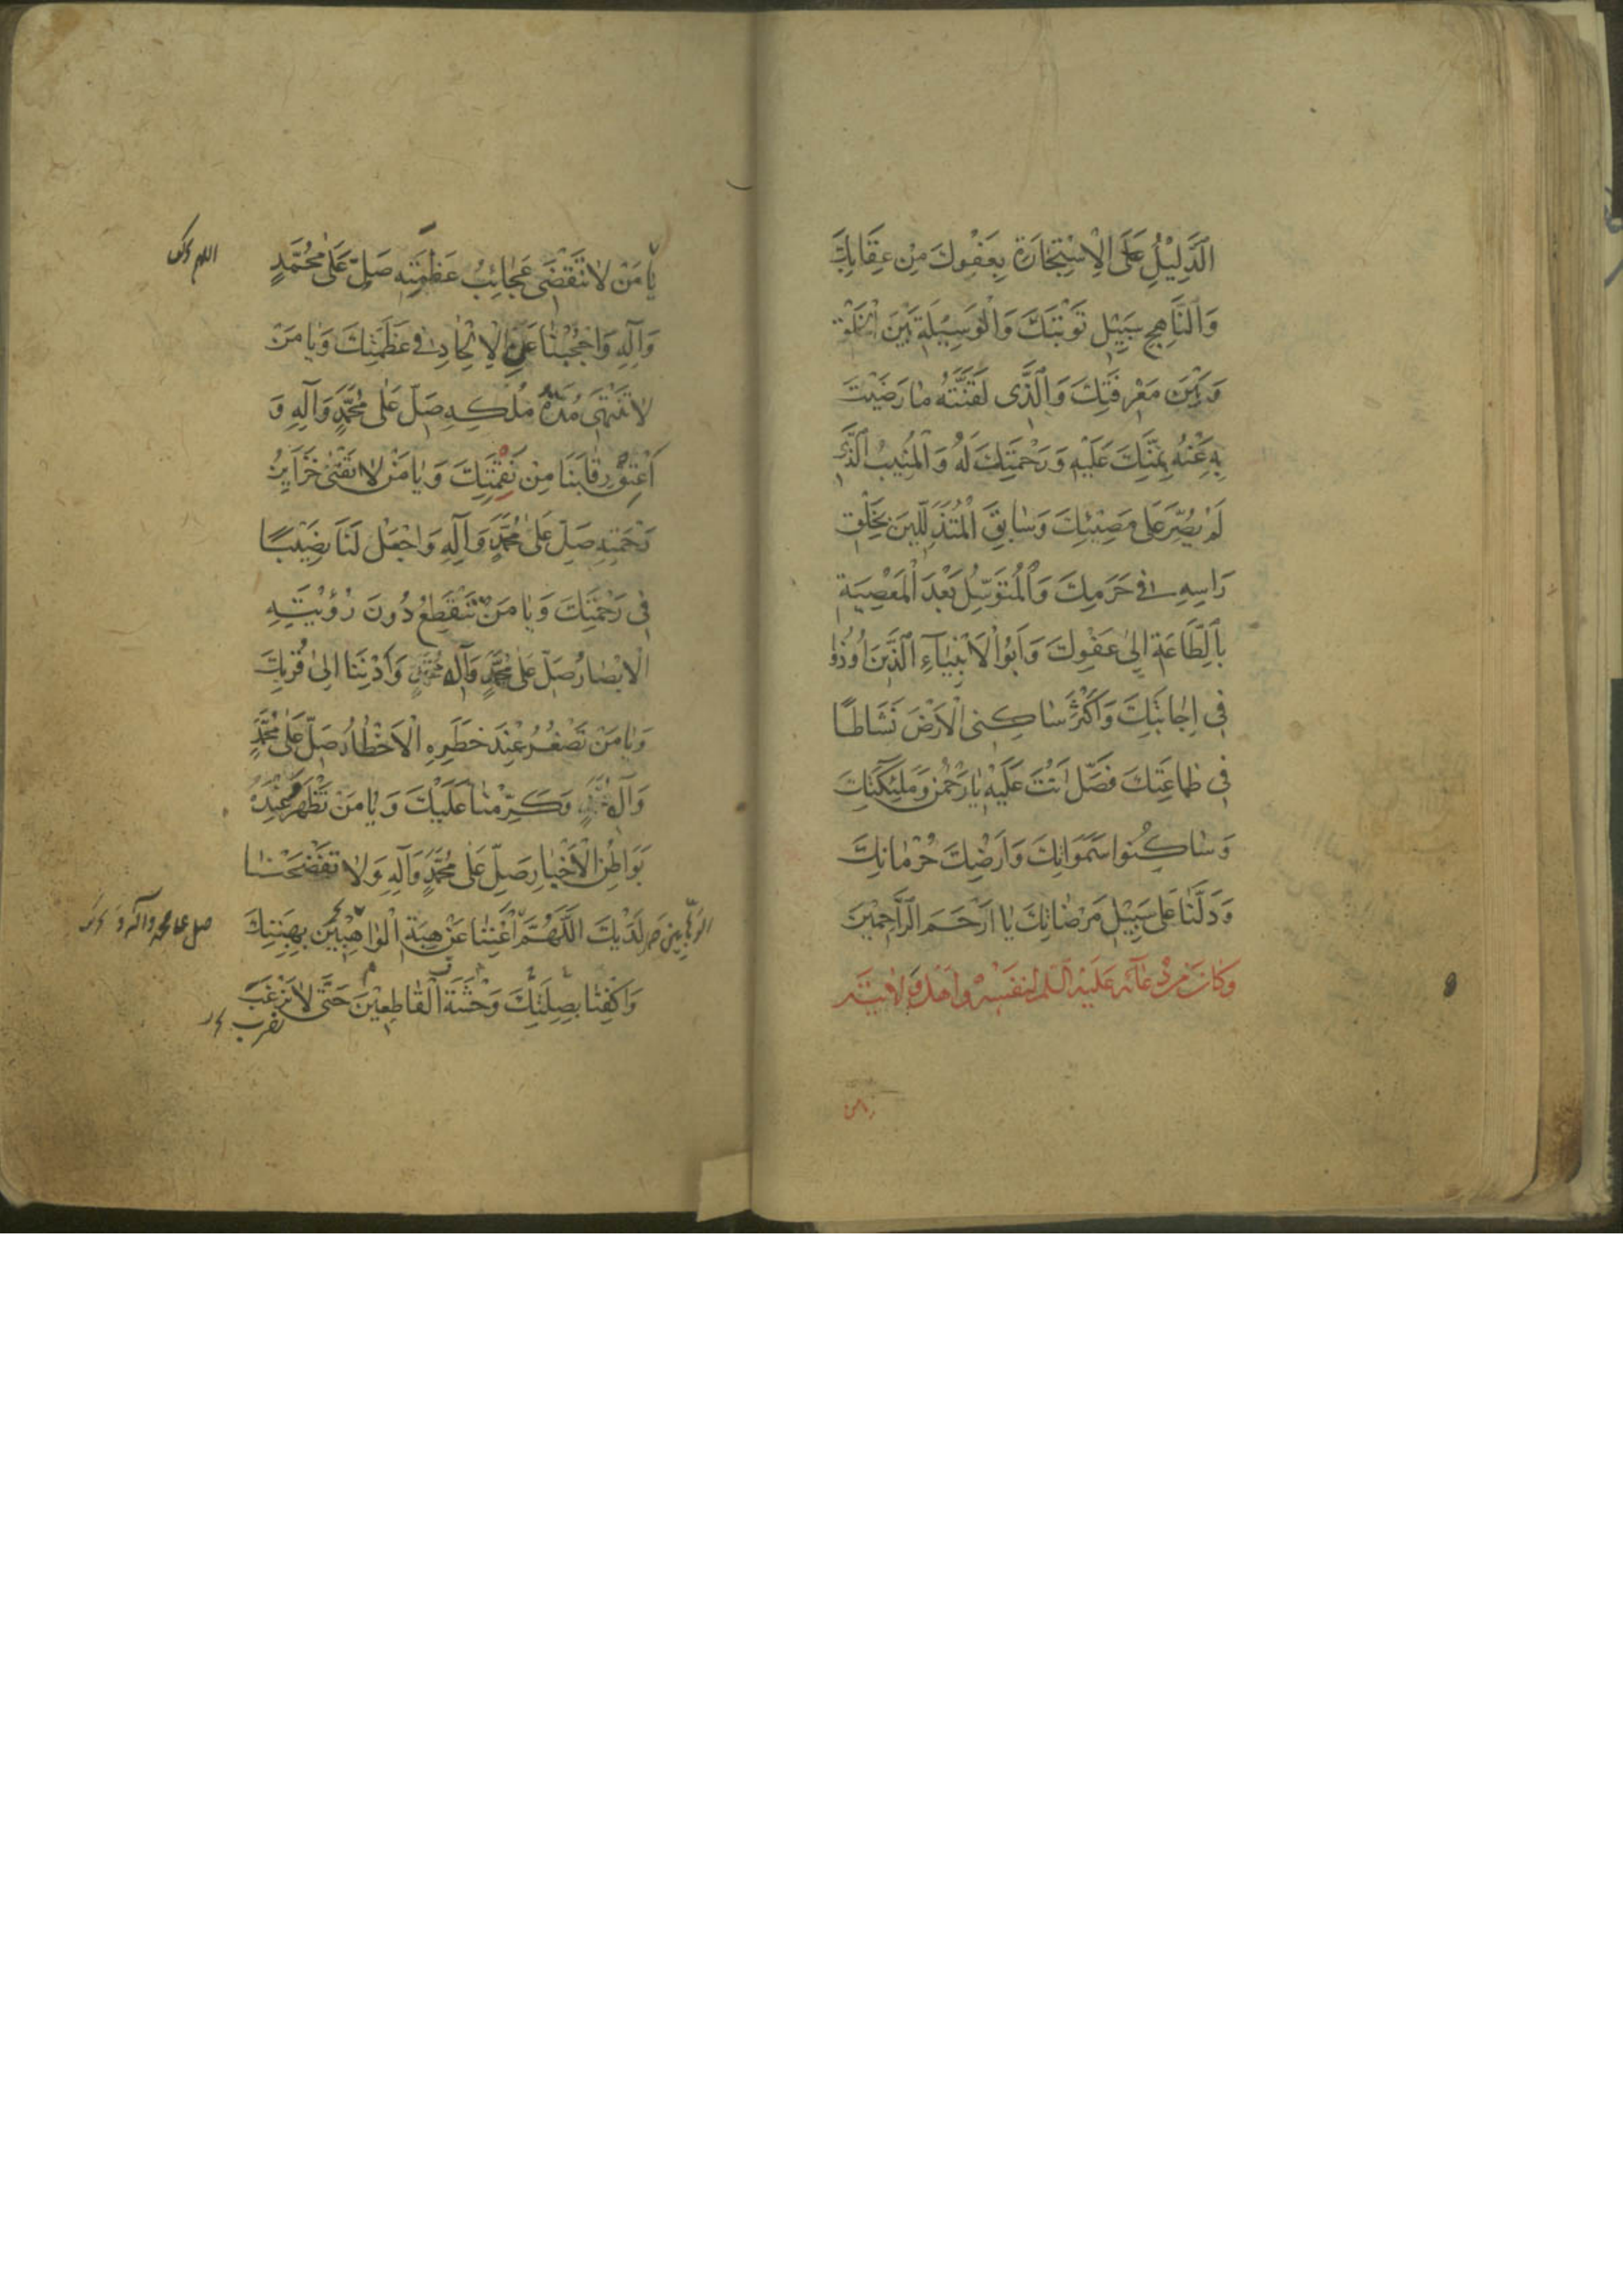 الدَّلِيْلُ عَلَى الْاِسْتِجَارَةِ بِعَفْوِكَ مِنْ عِقَابِكَ
وَالنَّاهِجِ سَبِيْلِ تَوْبَتِكَ وَالْوَسِيْلَةِ بَيْنَ الْخَلْقِ
وَبَيْنَ مَعْرِفَتِكَ وَالَّذَى لَقَّنْتَهُ مٰا رَضَيْتَ
بِهِ عَنْهُ بِمَنِّكَ عَلَيْهِ وَرَحْمَتِكَ لَهُ وَالْمُنِيْبُ الَّذَى
لَمْ يُصِّرَ عَلىٰ مَعْصِيَتِكَ وَسٰابِقَ الْمُتَذَلِّلِيْنَ بِحَلْقِ
رَاسِهِ فى حَرَمِكَ وَالْمُتَوَسِّلُ بَعْدَ الْمَعْصِيَةِ
بِالطَّاعَةِ اِلىٰ عَفْوِكَ وَاَبُوا لْاَنْبِيٰاءِ الَّذَيْنَ اُوذُوا
فِى اِجٰانَبِكَ وَاَكْثَرُ سٰاكِنِى الْاَرْضَ نَشَاطًا
فِى طٰاعَتِكَ فَصَّلِ اَنْتَ عَلَيْهِ يٰا رَحْمٰنُ وَمَلٰئِكَتِكَ
وَسٰاكِنُوا سَمَوَاتِكَ وَاَرْضِكَ حُرُمٰاتِكَ
وَدَلَّنٰا عَلىٰ سَبِيْلِ مَرْضٰاتِكَ يٰا اَرْحَمَ الرَّاحِمِيْنَ
وَكٰانَ مِنْ دُعٰآئِهِ عَلَيْهِ السّلم لِنَفْسِهِ وَاَهْلِ وِلٰايَتِهِ
يامن
اللهم
يٰا مَنْ لٰا تَنْقَضَى عَجٰائِبُ عَظَمَتِهِ صَلِّ عَلىٰ مُحَمَّدٍ
وَآلِهِ وَاحْجُبْنٰا عَنِ الْاِلْحٰادِ فى عَظَمَتِكَ وَيٰا مَنْ
لٰا تَنْتَهَى مُدَّةُ مُلْكِهِ صَلِّ عَلىٰ مُحَمَّدٍ وَآلِهِ وَ
اَعْتِقْ رِقٰابَنَا مِنْ نَقِمَتِكَ وَيٰا مَنْ لٰا تَفْنىٰ خَزَايِنُ
رَحْمَتِهِ صَلِّ عَلىٰ مُحَمَّدٍ وَآلِهِ وَاجْعَلْ لَنَا نَصِيْبًا
فِى رَحْمَتِكَ وَيٰا مَنْ تَنْقَطِعُ دُونَ رُؤْيَتِهِ
الْاَبْصٰارُ صَلِّ عَلىٰ مُحَمَّدٍ وَآلِ مُحَمَّدٍ وَاَدْنِنٰا اِلىٰ قُرْبِكَ
وَيٰا مَنْ تَصْغُرُ عِنْدَ خَطَرِهِ الْاَخْطٰارُ صَلِّ عَلىٰ مُحَمَّدٍ
وَآلِ مُحَمَّدٍ وَكَرِّمْنٰا عَلَيْكَ وَيٰا مَنْ تَظْهَرُ عِنْدَهُ
بَوَاطِنُ الْاَخْبٰارِ صَلِّ عَلىٰ مُحَمَّدٍ وَآلِهِ وَلٰا تَفْضَحْنٰا
لَدَيْكَ اللَّهُمَّ اَغْنِنٰا عَنْ هِبَةِ الْوَاهِبِيْنَ بِهِبَتِكَ
الوهّابين
صل على محمد وآله و
وَاكْفِنٰا بِصِلَتِكَ وَحْشَةَ الْقٰاطِعِيْنَ حَتَّى لٰا نَرْغَبَ